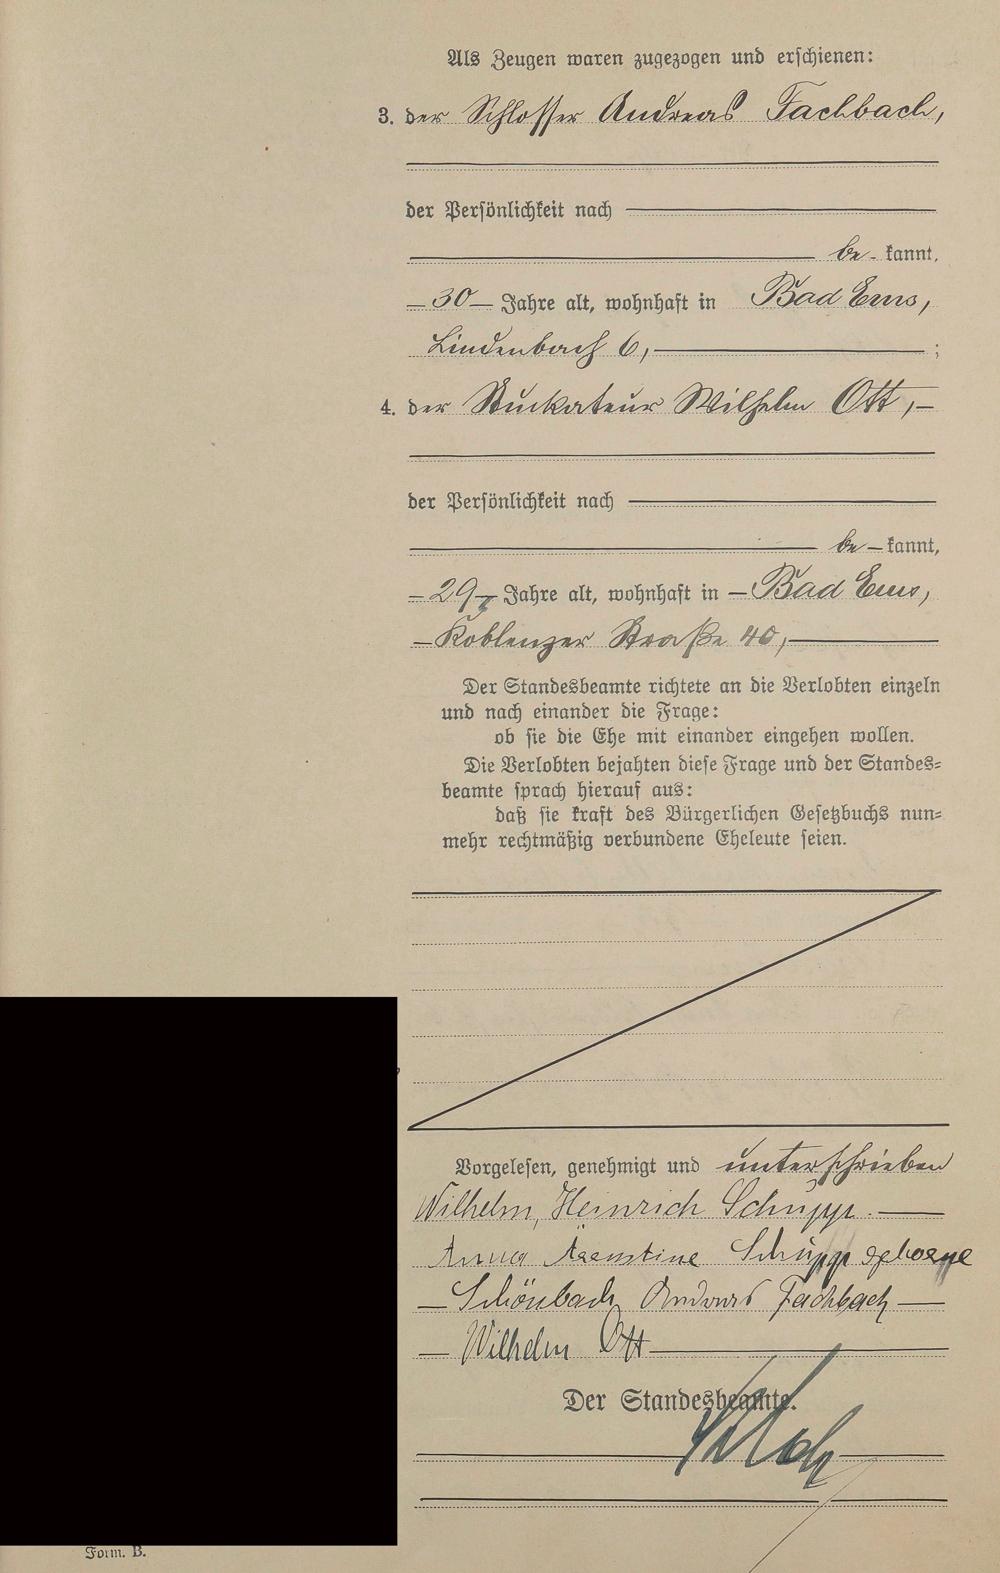 Als Zeugen waren zugezogen und erschienen:
3. der Schlosser Andreas Fachbach,
der Persönlichkeit nach
be- kannt,
30 Jahre alt, wohnhaft in Bad Ems,
Lindenbach 6, ;
4. der Stuckateur Wilhelm Ott,
der Persönlichkeit nach
be- kannt,
29 Jahre alt, wohnhaft in Bad Ems,
Koblenzer Straße 40,
Der Standesbeamte richtete an die Verlobten einzeln
und nach einander die Frage:
ob sie die Ehe mit einander eingehen wollen.
Die Verlobten bejahten diese Frage und der Standes=
beamte sprach hierauf aus:
daß sie kraft des Bürgerlichen Gesetzbuchs nun=
mehr rechtmäßig verbundene Eheleute seien.
Vorgelesen, genehmigt und unterschrieben
Wilhelm, Heinrich Schupp.
Anna Schupp geborene
Schönbach Andreas Fachbach
Wilhelm Ott
Der Standesbeamte.
Form. B.